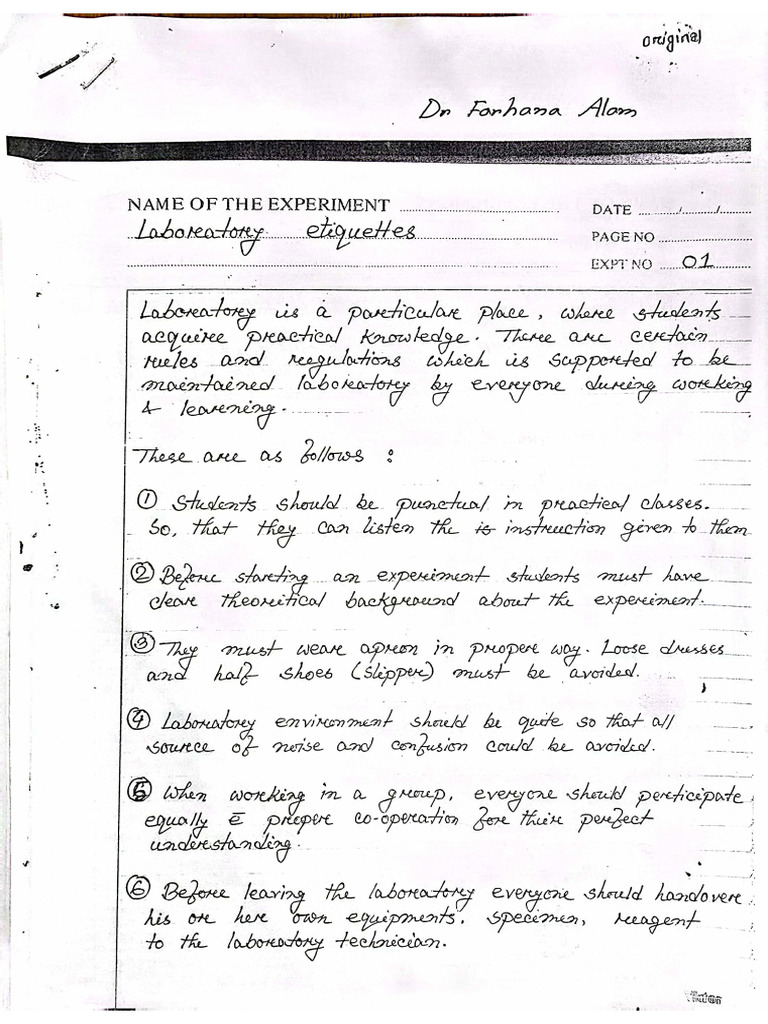 original
Dr Farhana Alam
NAME OF THE EXPERIMENT
DATE ... / ... / ...
Laboratory etiquettes
PAGE NO
EXPT NO 01
Laboratory is a particular place, where students
acquire practical knowledge. There are certain
rules and regulations which is supported to be
maintained laboratory by everyone during working
& learning.
These are as follows :
① Students should be punctual in practical classes.
So, that they can listen the is instruction given to them
② Before starting an experiment students must have
clear theoritical background about the experiment.
③ They must wear apron in proper way. Loose dresses
and half shoes (slipper) must be avoided.
④ Laboratory environment should be quite so that all
source of noise and confusion could be avoided.
⑤ When working in a group, everyone should perticipate
equally c̄ proper co-operation for their perfect
understanding.
⑥ Before leaving the laboratory everyone should handover
his or her own equipments, specimen, reagent
to the laboratory technician.